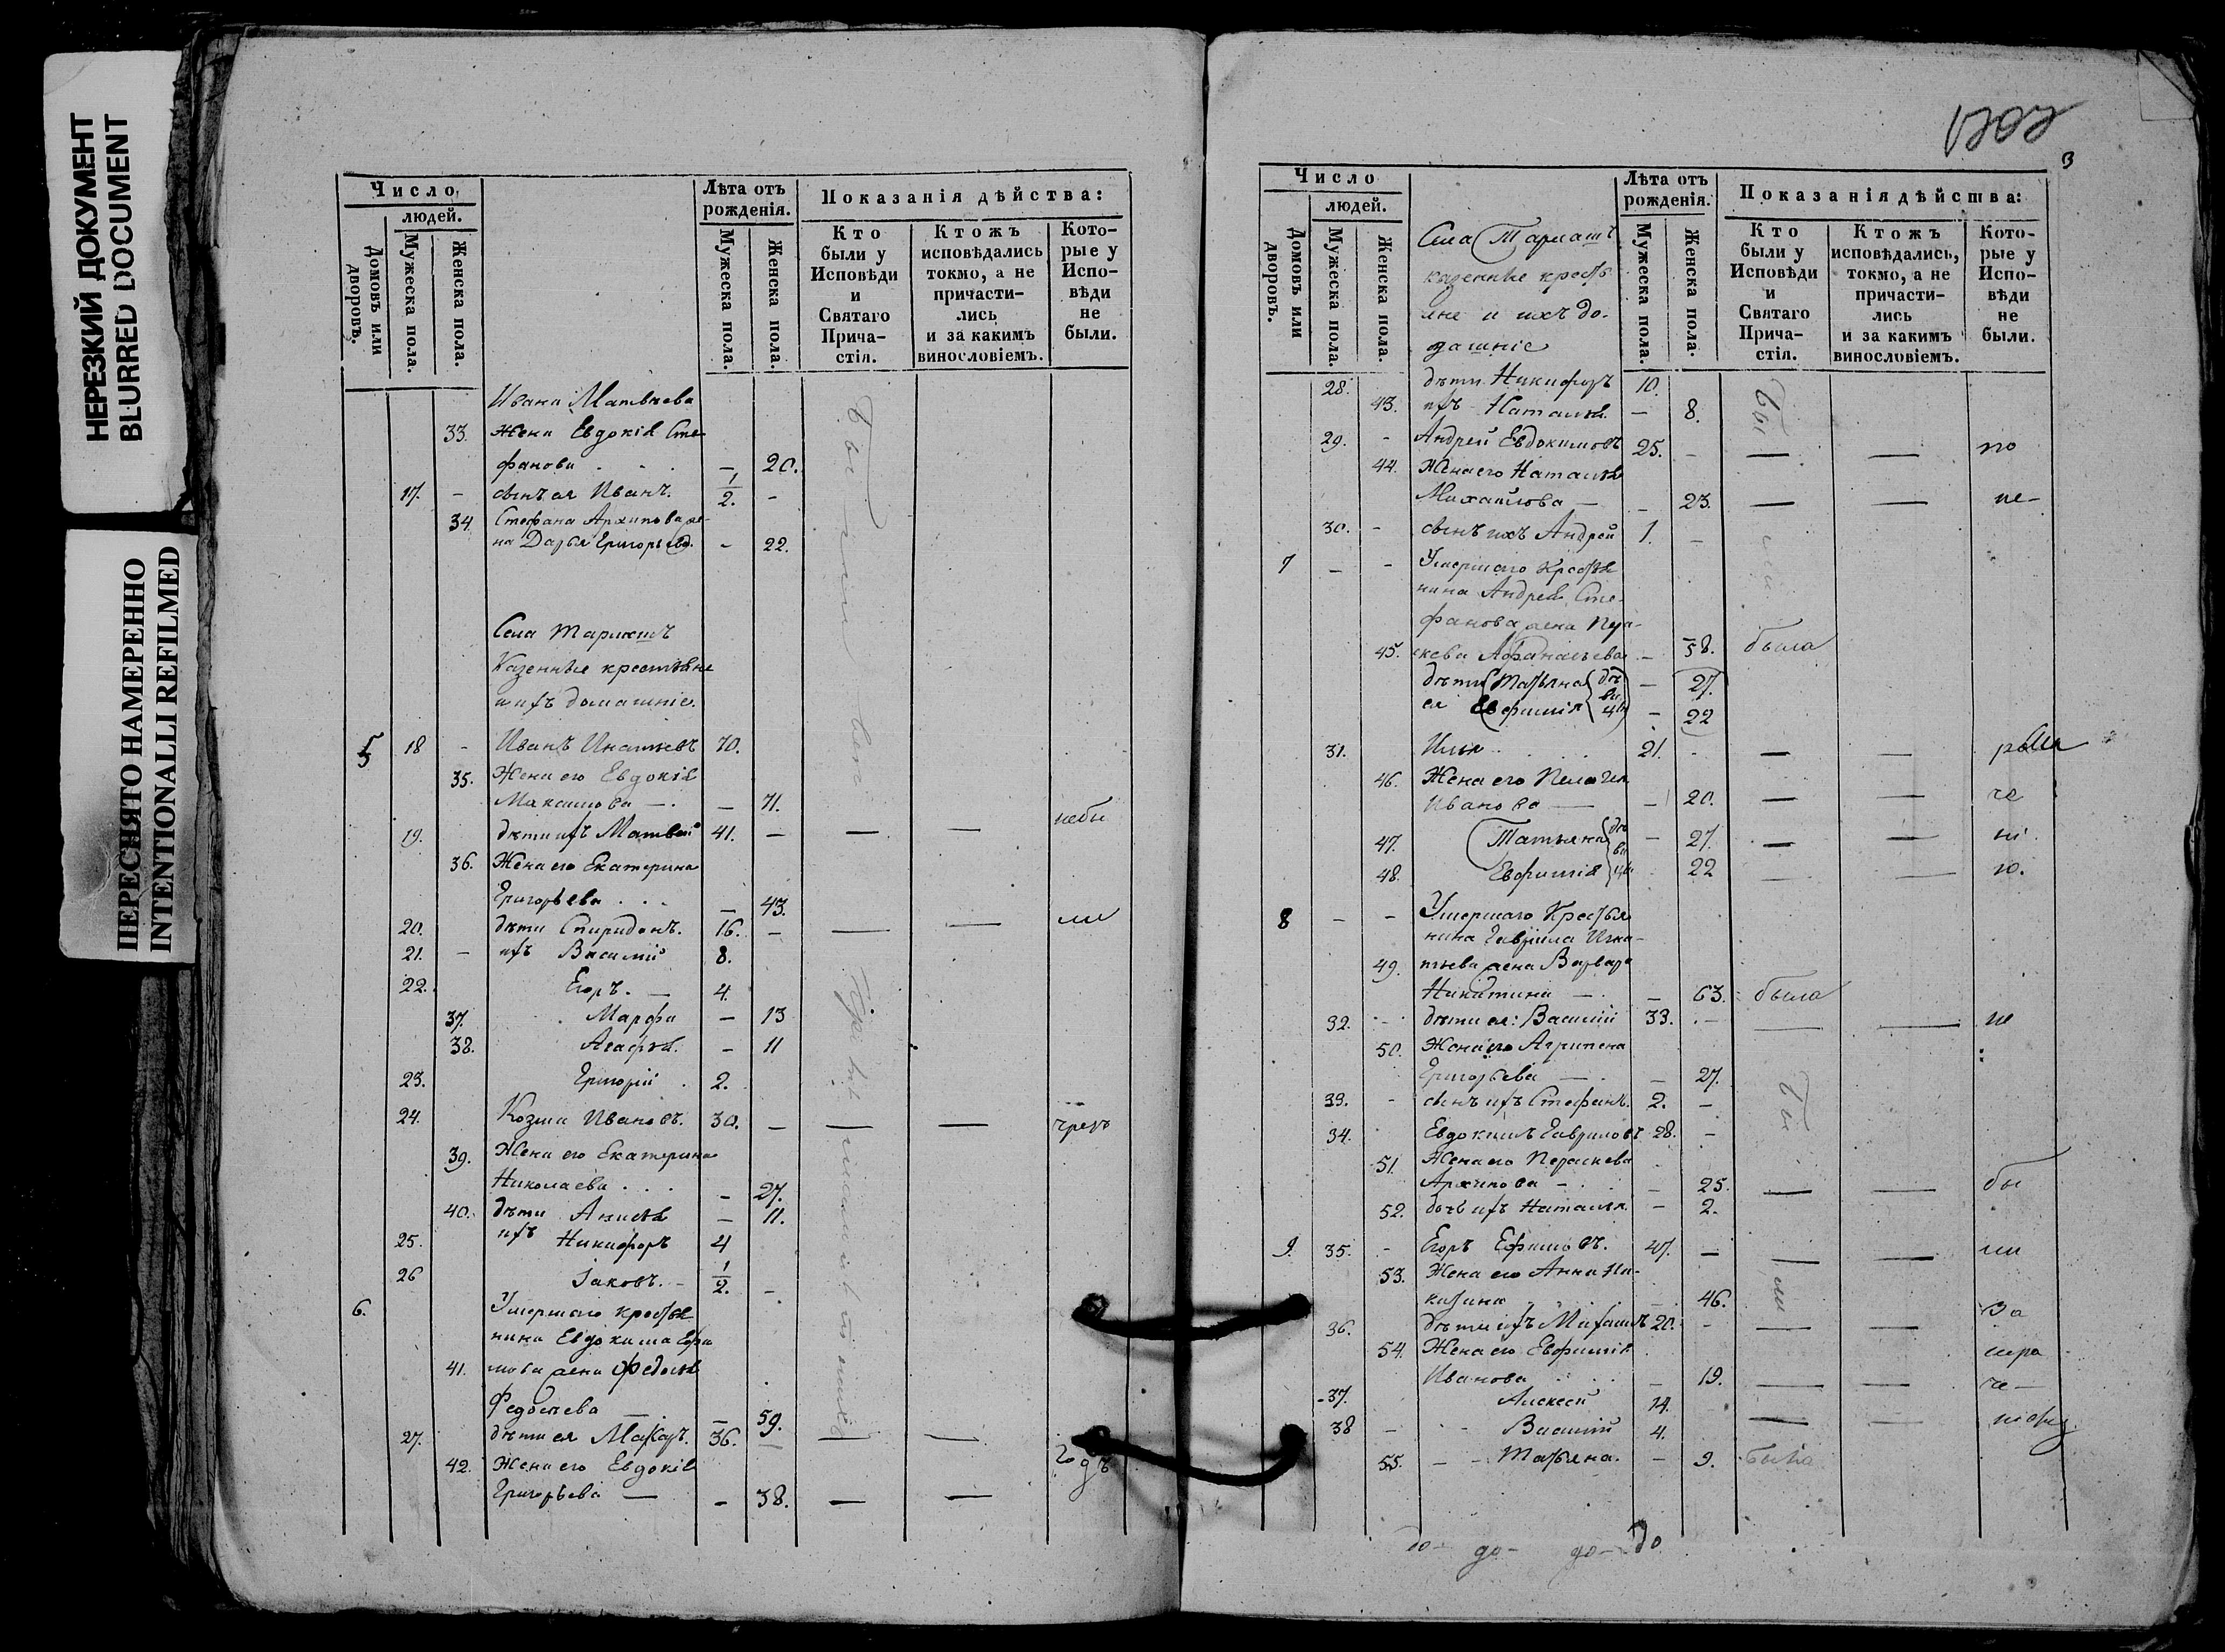 НЕРЕЗКИЙ ДОКУМЕНТ
BLURRED DOCUMENT
ПЕРЕСНЯТО НАМЕРЕННО
INTENTIONALLI REFILMED
Число
людей.
Домовъ или дворовъ.
Мужеска пола.
Женска пола.
Лѣта отъ рожденія.
Мужеска пола.
Женска пола.
Показанія дѣйства:
Кто были у Исповѣди и Святаго Прича-стія.
Ктожъ исповѣдались токмо, а не причасти-лись и за какимъ винословіемъ.
Кото-рые у Испо-вѣди не были.
Ивана Матвѣева
33. Жена Евдокія Сте-
фанова . . . — 20.
17. - сынъ ея Иванъ. 1/2. -
34. Стефана Архипова же-
на Дарья Григорьева. - 22.
Села
Казенные крестьяне
и ихъ домашніе.
5 18 - Иванъ Игнатьевъ 70.
35. Жена его Евдокія
Максимова — . — 71.
19. дѣти ихъ Матвей 41. — — — небы
36. Жена его Екатерина
Григорьева . . . — 43.
20. дѣти Спиридонъ. 16. — — — ли
21. — ихъ Василій 8.
22. Егоръ. — 4.
37. Марфа — 13
38. Агафья. — 11
23. Григорій . 2.
24. Козма Ивановъ. 30. — — — чрезъ
39. Жена его Екатерина
Николаева . . . - 27.
40. дѣти Анисья — 11.
25. ихъ Никифоръ 4
26 Іаковъ. - 1/2. -
6. Умершаго крестья
нина Евдокима Ефи
41. мова жена Федосья
Федосѣева — . — 59.
27. дѣти ея Макаръ. 36. — — —
42. Жена его Евдокія годъ
Григорьева — - 38. — —
3
Число
людей.
Домовъ или дворовъ.
Мужеска пола.
Женска пола.
Села
казенные кресть
яне и ихъ до-
машніе
Лѣта отъ рожденія.
Мужеска пола.
Женска пола.
Показанія дѣйства:
Кто были у Исповѣди и Святаго Прича-стія.
Ктожъ исповѣдались, токмо, а не причасти-лись и за какимъ винословіемъ.
Кото-рые у Испо-вѣди не были.
28. дѣти Никифоръ 10.
43. ихъ - Наталья — 8.
29. - Андрей Евдокимовъ 25. - — — по
44. Жена его Наталья
Михайлова — - 23. — — не-
30. - сынъ ихъ Андрей 1. -
7 — - Умершаго Крестья
нина Андрея Сте-
фанова жена Пра-
45. скева Афанасьева — 58. была
дѣти Татьяна дѣ — 27.
ея Евфимія — 22
31. Илья . . . . 21. - — —
46. Жена его Пелагея
Иванова — — 20. — — че
47. Татьяна - 27. — —
48. Евфимія 22 — — ю.
8 — - Умершаго Крестья
нина Гавріила Игна-
49. тьева жена Варвара
Никитина — . — 63. была
32. дѣти ея: Василій 33. . — — — не
50. Жена его Агрипена
Григорьева — . — 27.
33. - сынъ ихъ Стефанъ. 2. —
34. Евдокимъ Гавриловъ 28. —
51. Жена его Параскева
Архипова — . — 25. — — бы
52. дочь ихъ Наталья. — 2.
9. 35. - Егоръ Ефимовъ. 47. — — — ли
53. Жена его Анна Ни-
китина . . . . — 46. за
36. дѣти ихъ Михаилъ 20. - — —
54. Жена его Евфимія нера
Иванова . . . — 19. — — че—
37. Алексей 14.
38 — - Василій 4. — —
55. — - Татьяна. — 9. была
до- до- до- до